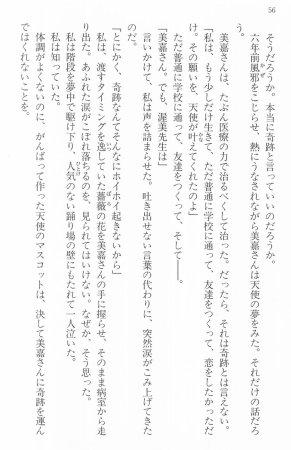 56
そうだろうか。本当に奇跡と言っていいのだろうか。
六年前風邪をこじらせ、熱にうなされながら美嘉さんは天使の夢をみた。それだけの話だろ
う。
美嘉さんは、たぶん医療の力で治るべくして治った。だったら、それは奇跡とは言えない。
「私は、もう少しだけ生きて、ただ普通に学校に通って、友達をつくって、恋をしたかった
だけ。その願いを、天使が叶えてくれたのよ」
ただ普通に学校に通って、友達をつくって、そして――。
「美嘉さん。でも、渥美先生は」
言いかけて、私は声を詰まらせた。吐き出せない言葉の代わりに、突然涙がこみ上げてきた
のだ。
「とにかく、奇跡なんてそんなにホイホイ起きないから」
私は、渡すタイミングを逸していた薔薇の花を美嘉さんの手に握らせ、そのまま病室から走
り出た。あふれた涙がこぼれ落ちるのを、見られてはいけない。なぜか、そう思った。
私は階段を夢中で駆け下り、人気のない踊り場の壁にもたれて一人泣いた。
私は知っていた。
体調がよくないのに、がんばって作った天使のマスコットは、決して美嘉さんに奇跡を運ん
ではくれないことを。